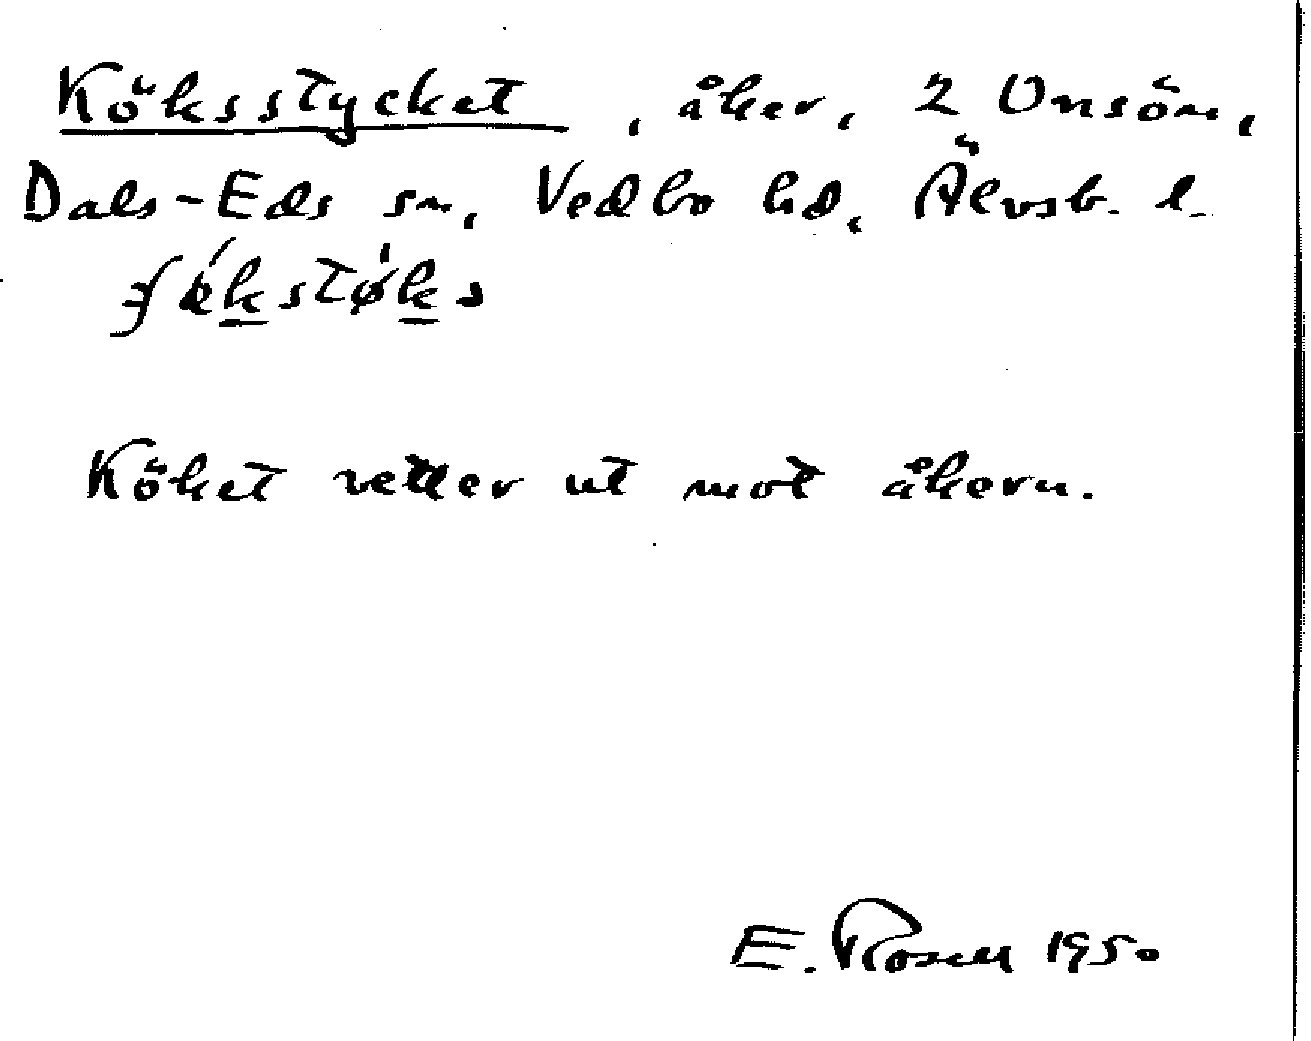 Köksstycket, åker, 2 Onsön,
Dals-Eds sn, Vedbo hd, Älvsb. l.
Köket vetter ut mot åkern.
E. Rosell 1950